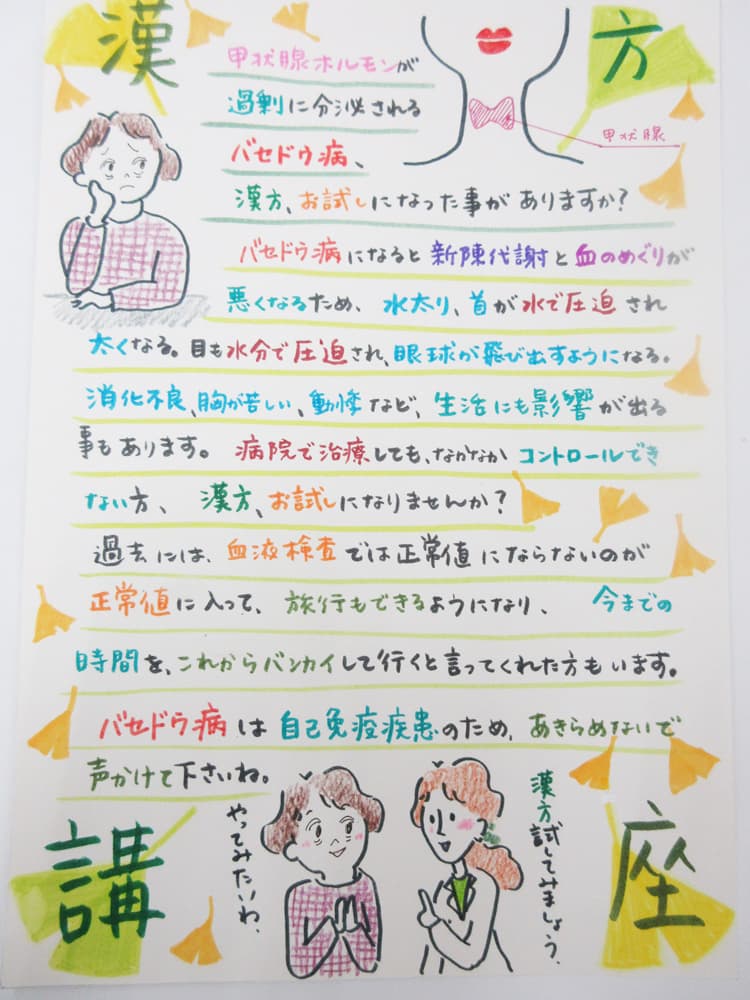 漢方
甲状腺ホルモンが
過剰に分泌される
甲状腺
バセドウ病、
漢方、お試しになった事がありますか?
バセドウ病になると新陳代謝と血のめぐりが
悪くなるため、水太り、首が水で圧迫され
太くなる。目も水分で圧迫され、眼球が飛び出すようになる。
消化不良、胸が苦しい、動悸など、生活にも影響が出る
事もあります。病院で治療しても、なかなかコントロールでき
ない方、漢方、お試しになりませんか?
過去には、血液検査では正常値にならないのが
正常値に入って、旅行もできるようになり、今までの
時間を、これからバンカイして行くと言ってくれた方もいます。
バセドウ病は自己免疫疾患のため、あきらめないで
声かけて下さいね。
やってみたいわ、
漢方試してみましょう、
講座